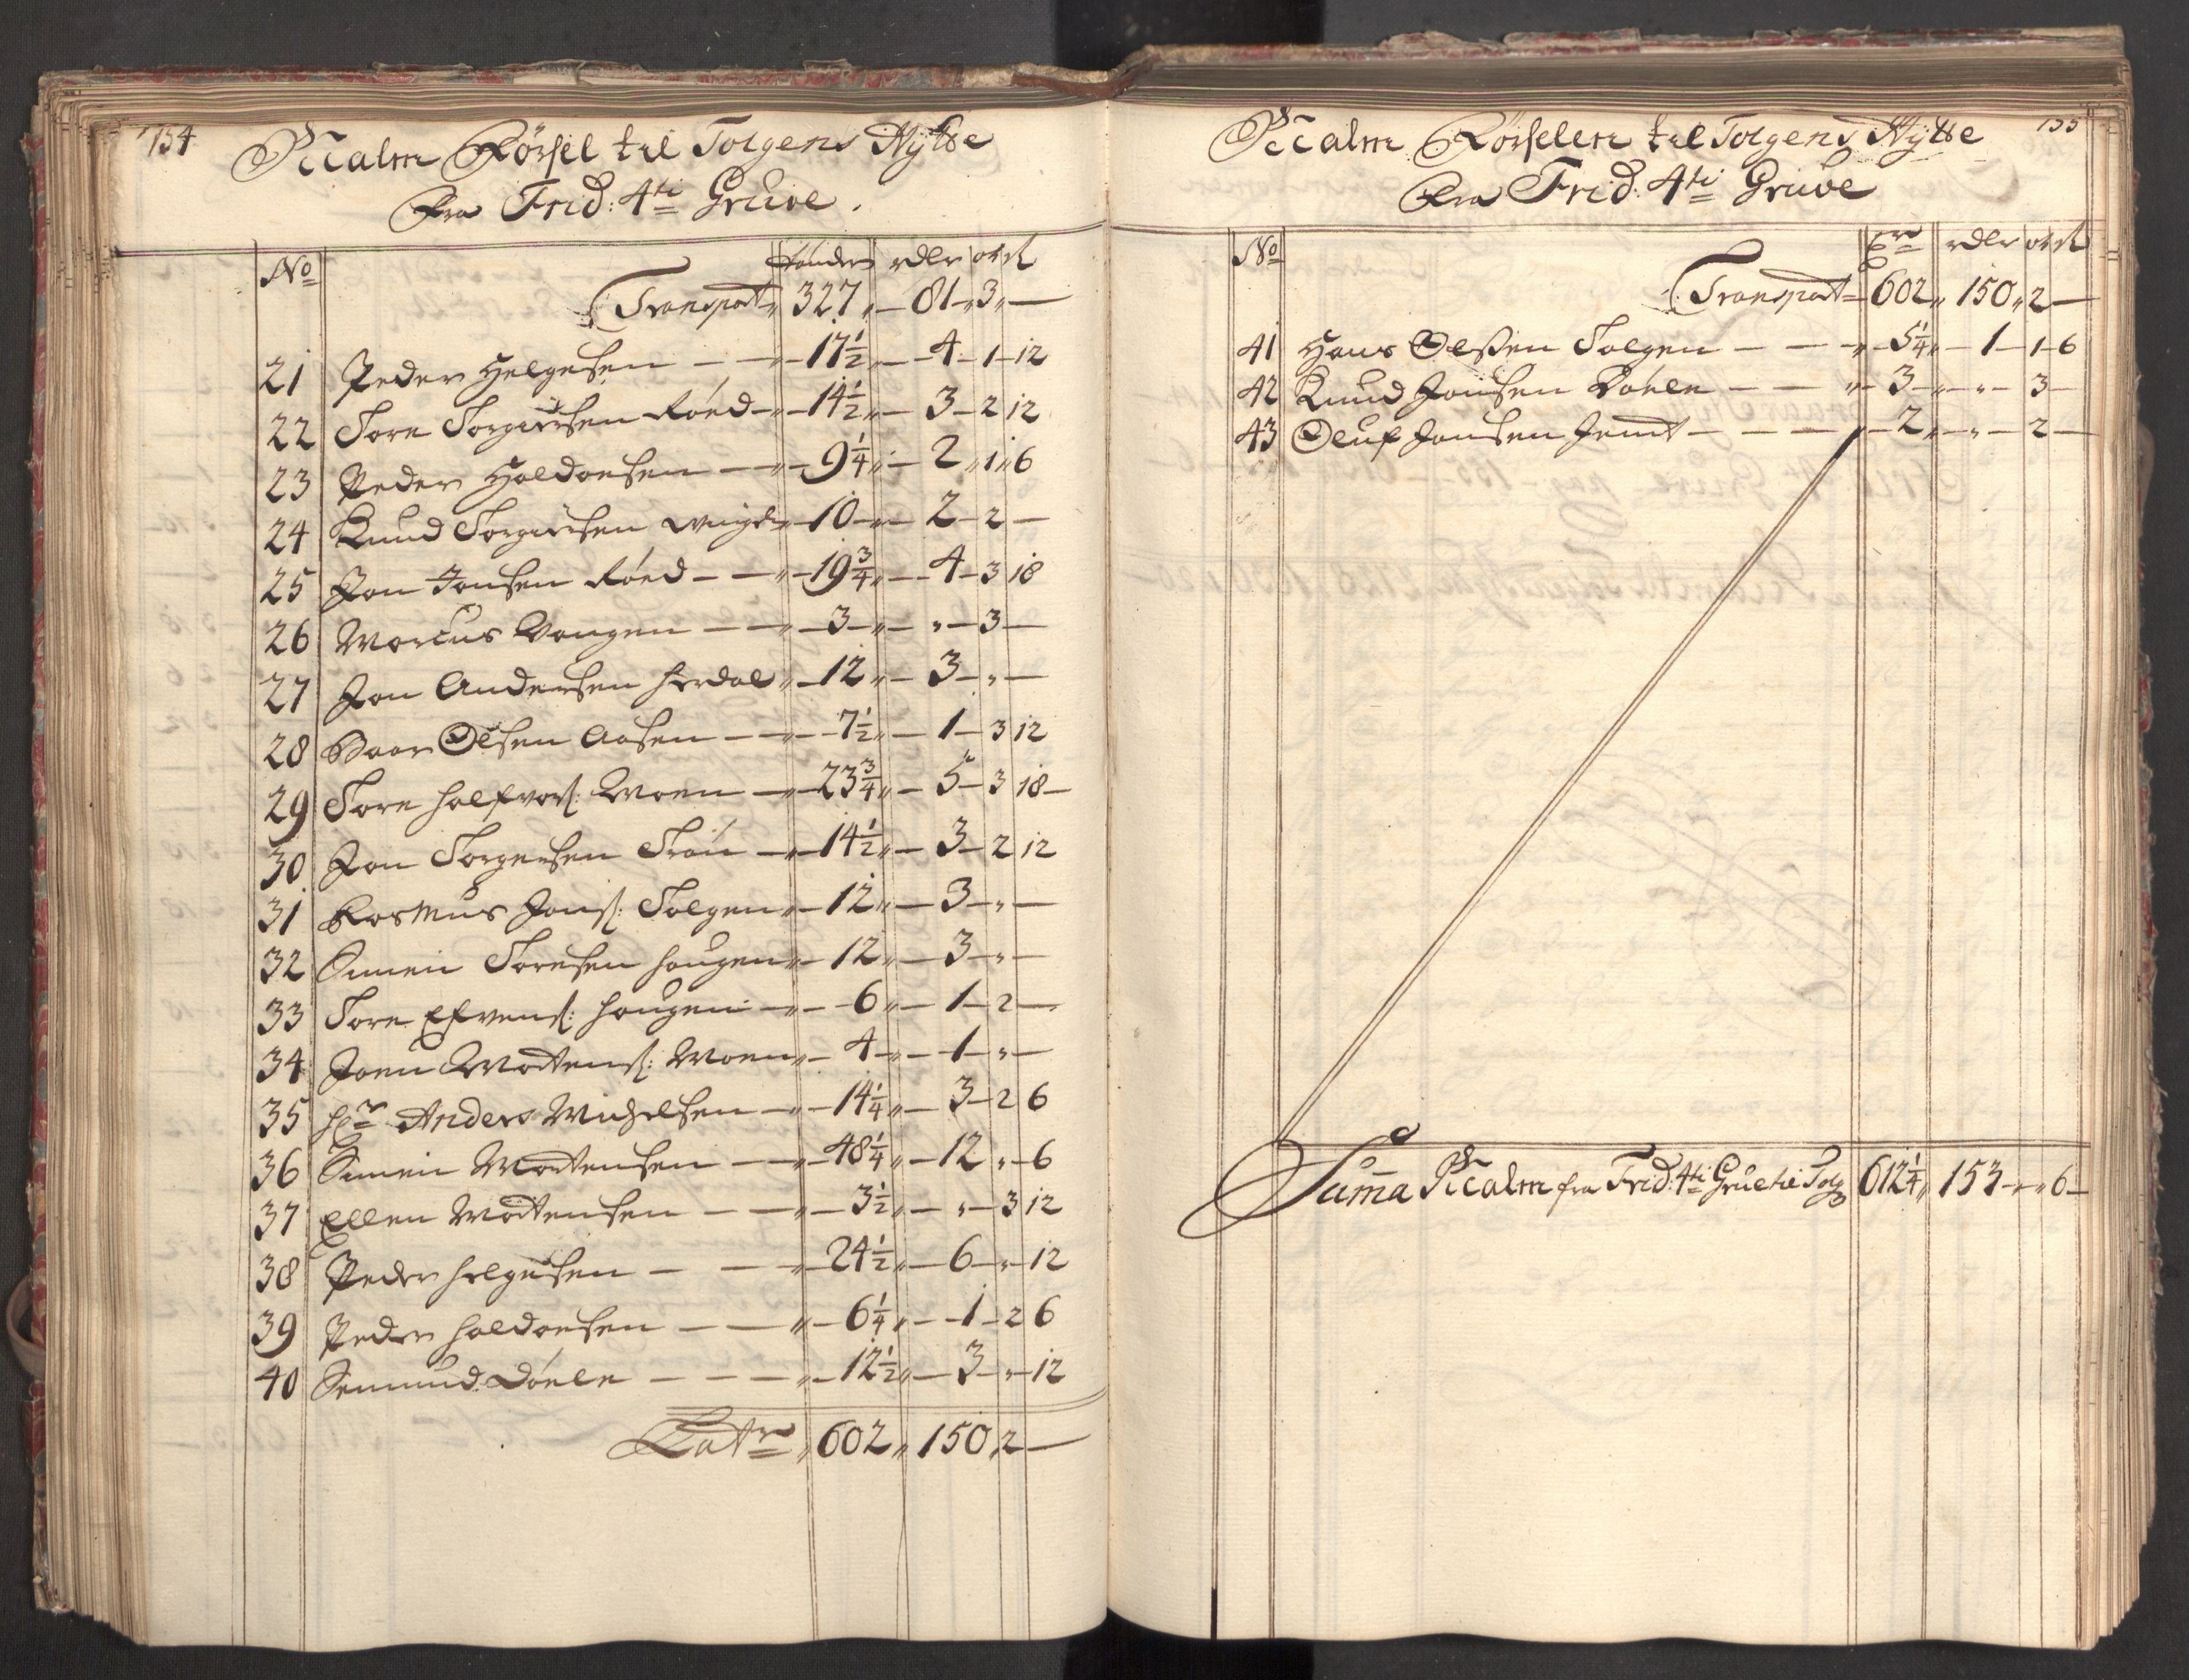 154
Sicalm Körsel til Tolgens Hÿtte
Fra Frid: 4ti Gruve.
No tønder rdlr ort s
Transport 327 „ 81 3 —
21 Peder Helgesen — — 17½ „ 4 1 12
22 Tore Torgiersen Röed — 14½ „ 3 2 12
23 Peder Haldoersen — 9¼ „ 2 1 6
24 Knud Torgiersen — 10 „ 2 2 —
25 Jon Jonsen Röed — — 19¾ „ 4 3 18
26 Marcus Vangen — — 3 „ „ 3 —
27 Jon Andersen Herdal 12 „ 3 „ —
28 Baar Olsen Aasen — — 7½ „ 1 3 12
29 Tore Halfvors: Moen — 23¾ „ 5 3 18
30 Jon Torgersen Trön — 14½ „ 3 2 12
31 Rasmus Jons: Tolgen 12 „ 3 „ —
32 Simen Toresen Hougen 12 „ 3 „ —
33 Tore Efvens: Hougen — 6 „ 1 2 —
34 Joen Mortens: Moen 4 „ 1 „ —
35 Hr Anders Michelsen — 14¼ „ 3 2 6
36 Simen Mortensen — — 48¼ „ 12 „ 6
37 Ellen Mortensen — — 3½ „ „ 3 12
38 Peder Helgesen — — 24½ „ 6 „ 12
39 Peder Haldoersen — — 6¼ „ 1 2 6
40 Semund Döele — — — 12½ „ 3 „ 12
Latr 602 „ 150 2 —
155
Sicalm Körselen til Tolgens Hÿtte
Fra Frid: 4ti Gruve
No Trr rdlr ort s
Transport 602 „ 150 „ 2 —
41 Hans Olssen Tolgen — — 5¼ „ 1 1 6
42 Knud Jonsen Döele — — 3 „ „ 3 —
43 Oluf Jonsen Jemt — — — 2 „ „ 2 —
Suma Sicalm fra Frid: 4ti Grue til Tolg 612¼ „ 153 „ 6 —